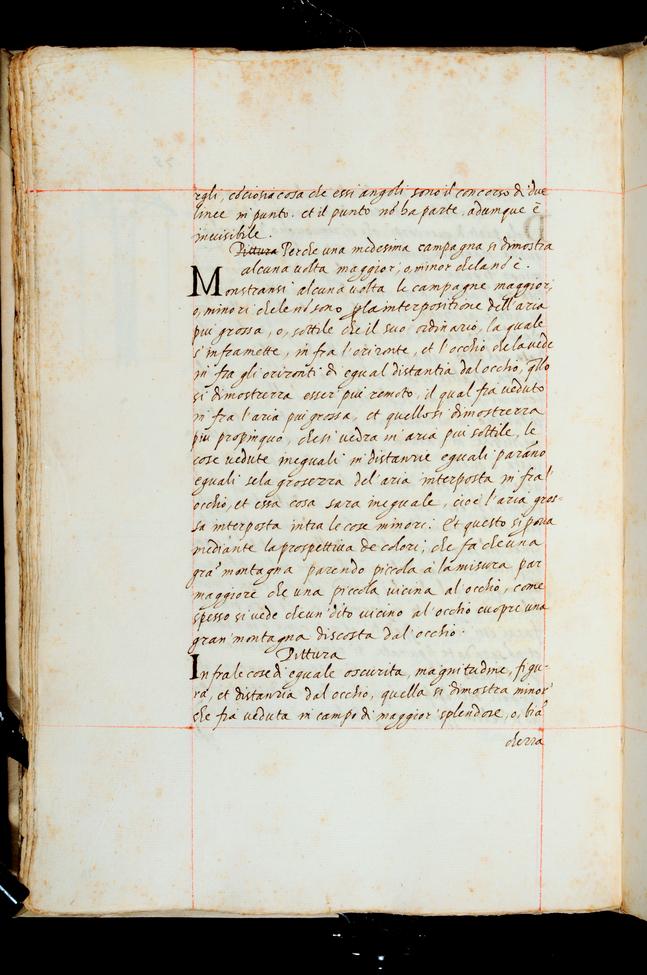 rgli, cōciosia cosa che essi angoli sono il concorso di due
linee in punto. et il punto nō ha parte, adumque è
invisibile.
Pittura Perche una medesima campagna si dimostra
alcuna volta maggior; o, minor che la nō è.
Monstransi alcuna volta le campagne maggiori,
o, minori che le nō sono p la interpositione dell'aria
piu grossa, o, sottile che il suo ordinario, la quale
s'inframette, in fra l'orizonte, et l'occhio che la vede
in fra gli orizonti di equal distantia dal occhio, qllo
si dimosterra esser piu remoto, il qual fia veduto
in fra l'aria piu grossa, et quello si dimosterra
piu propinquo, che si vedra in aria piu sottile, le
cose vedute ineguali in distanzie equali parāno
equali se la grosezza del'aria interposta in fra l'
occhio, et essa cosa sara ineguale, cioè l'aria gros=
sa interposta intra le cose minori: Et questo si pova
mediante la prospettiva de colori; che fa che una
grā montagna parendo piccola à la misura par
maggiore che una piccola vicina al occhio, come
spesso si vede che un dito vicino al occhio cuopre una
gran montagna discosta dal'occhio.
Pittura
In fra le cose di equale oscurita, magnitudine, figu-
ra, et distanzia dal occhio, quella si dimostra minor
che fia veduta in campo di maggior splendore, o, biā
chezza